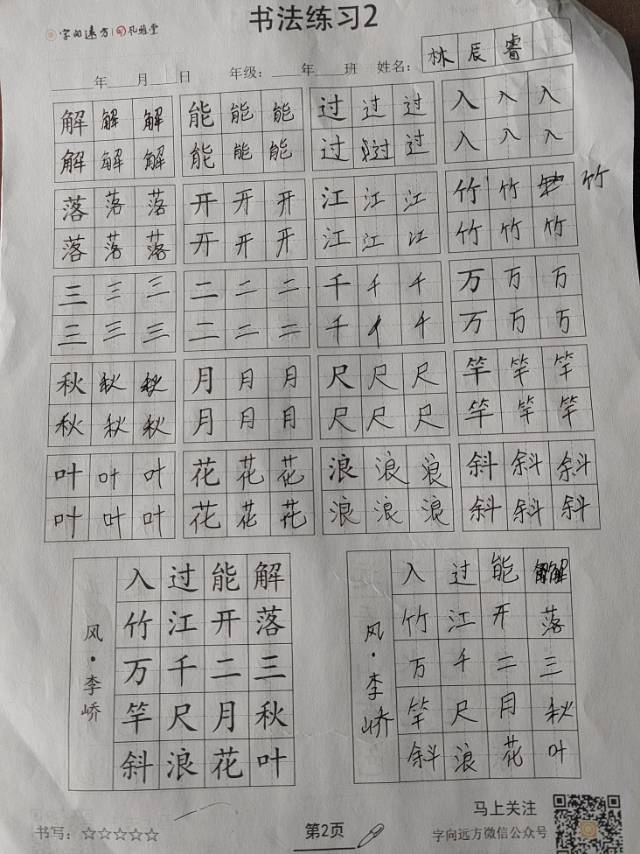 字向远方 孔颖堂
书法练习2
年 月 日 年级: 年 班 姓名: 林辰睿
解解解 能能能 过过过 入入入
解解解 能能能 过过过 入入入
落落落 开开开 江江江 竹竹 竹
落落落 开开开 江江江 竹竹竹
三三三 二二二 千千千 万万万
三三三 二二二 千千千 万万万
秋秋秋 月月月 尺尺尺 竿竿竿
秋秋秋 月月月 尺尺尺 竿竿竿
叶叶叶 花花花 浪浪浪 斜斜斜
叶叶叶 花花花 浪浪浪 斜斜斜
风·李峤
解落三秋叶
能开二月花
过江千尺浪
入竹万竿斜
风·李峤
解落三秋叶
能开二月花
过江千尺浪
入竹万竿斜
书写:☆☆☆☆☆
第2页
马上关注
字向远方微信公众号